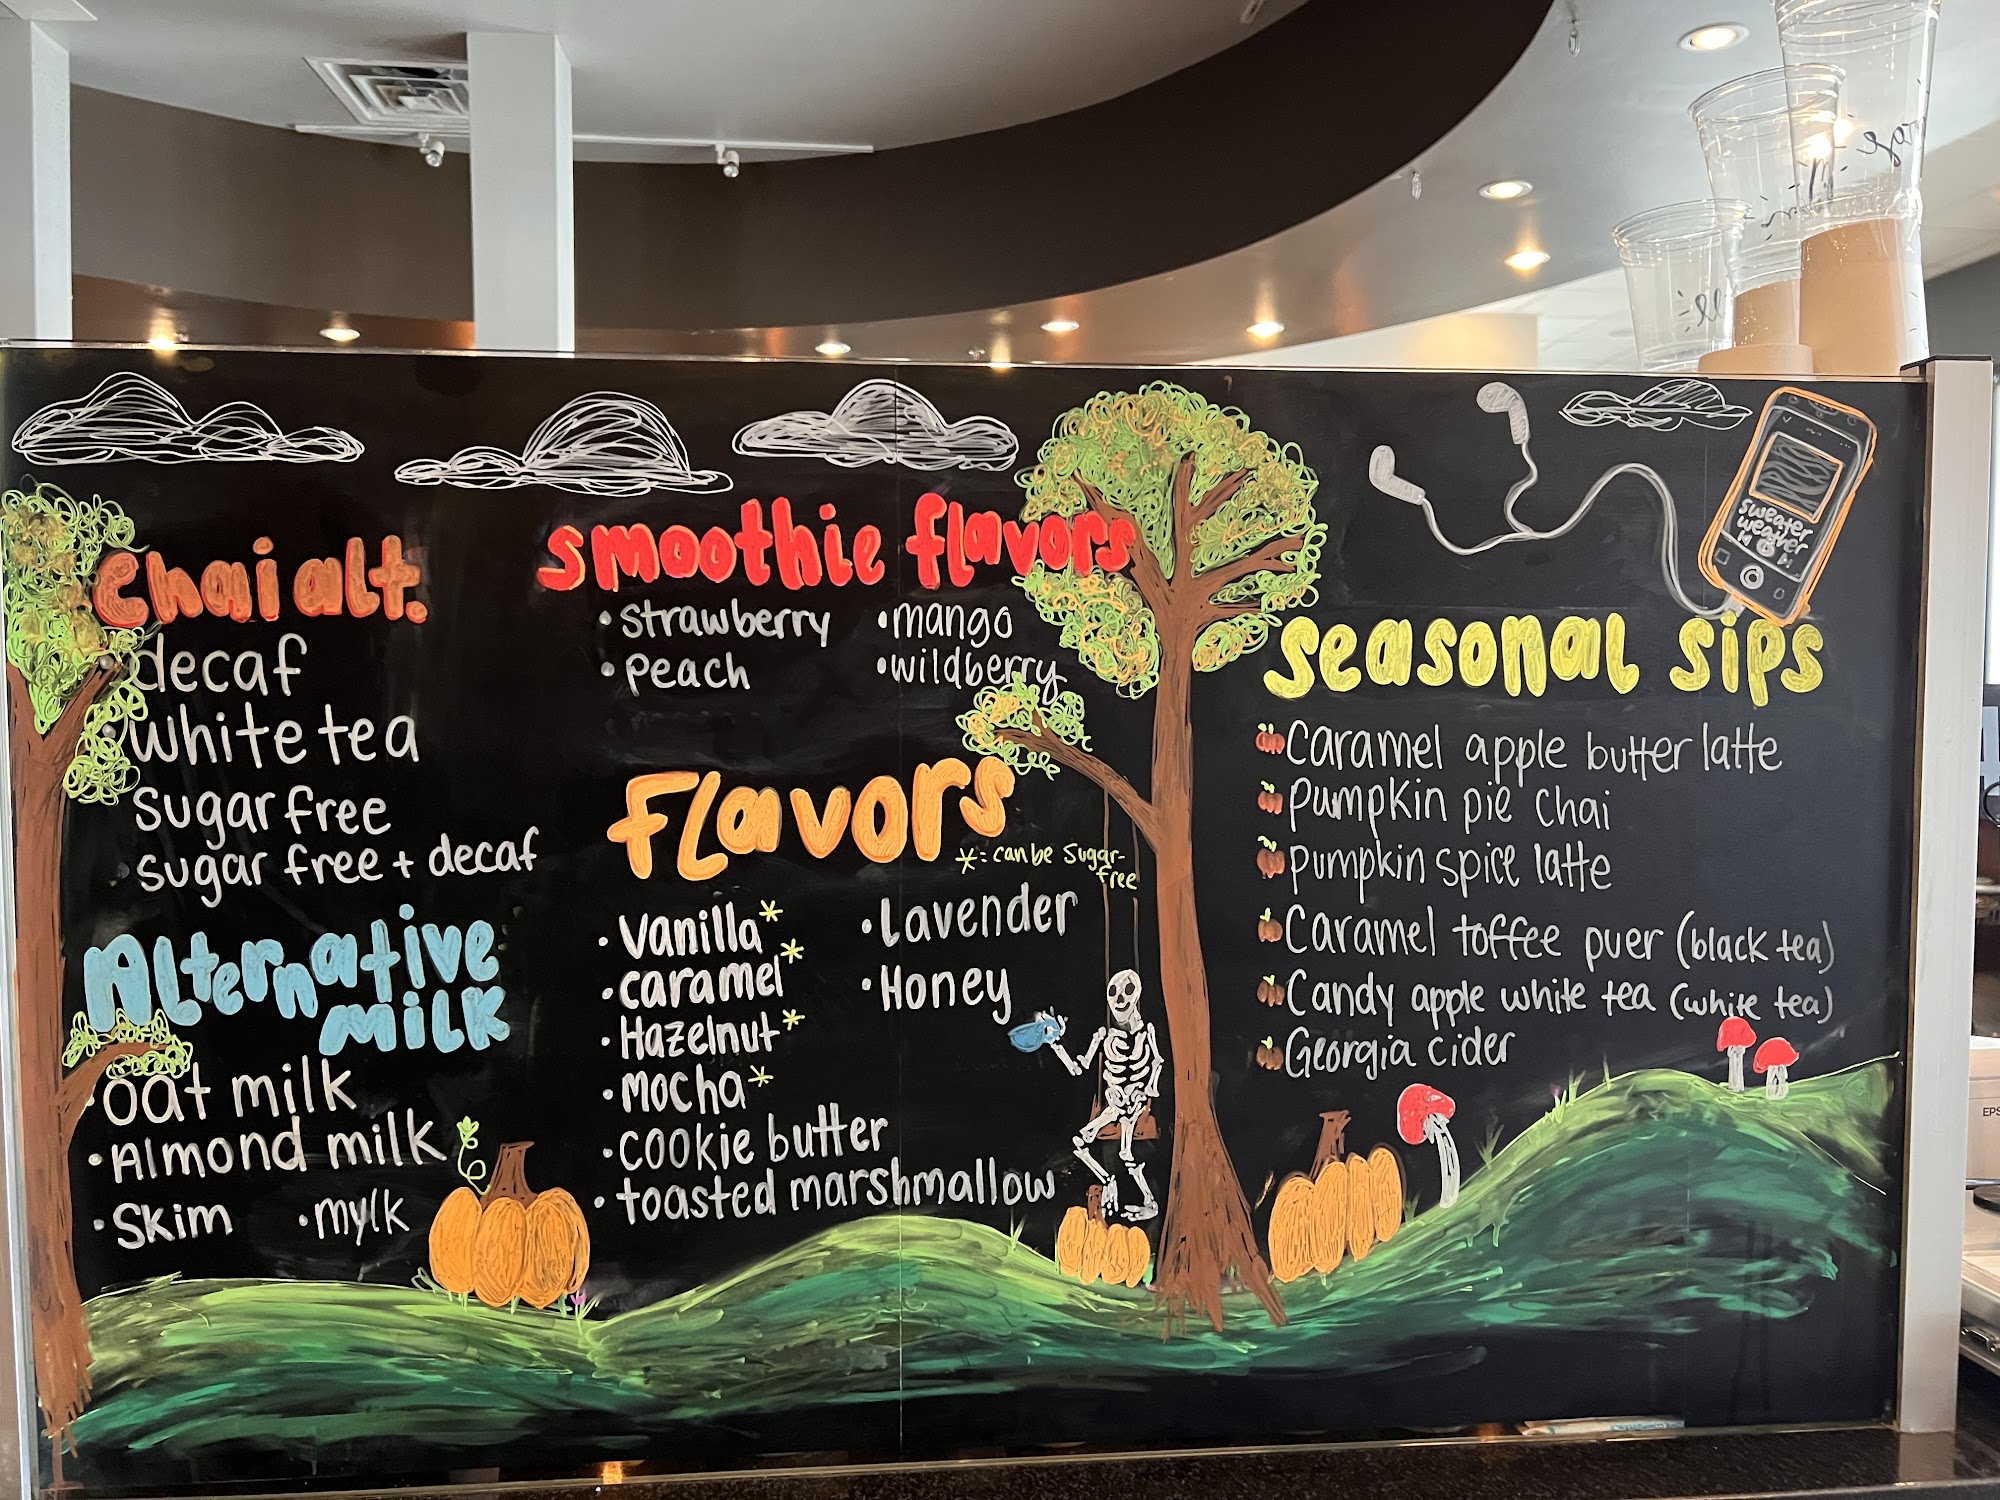 Chai alt.
• decaf
• white tea
• Sugar free
• Sugar free + decaf
Alternative
milk
• oat milk
• Almond milk
• Skim • mylk
smoothie flavors
• Strawberry • mango
• peach • wildberry
Flavors
* = can be Sugar-
free
• Vanilla* • Lavender
• caramel* • Honey
• Hazelnut*
• Mocha*
• cookie butter
• toasted marshmallow
sweater
weather
seasonal sips
Caramel apple butter latte
Pumpkin pie chai
Pumpkin spice latte
Caramel toffee puer (black tea)
Candy apple white tea (white tea)
Georgia cider
EPS